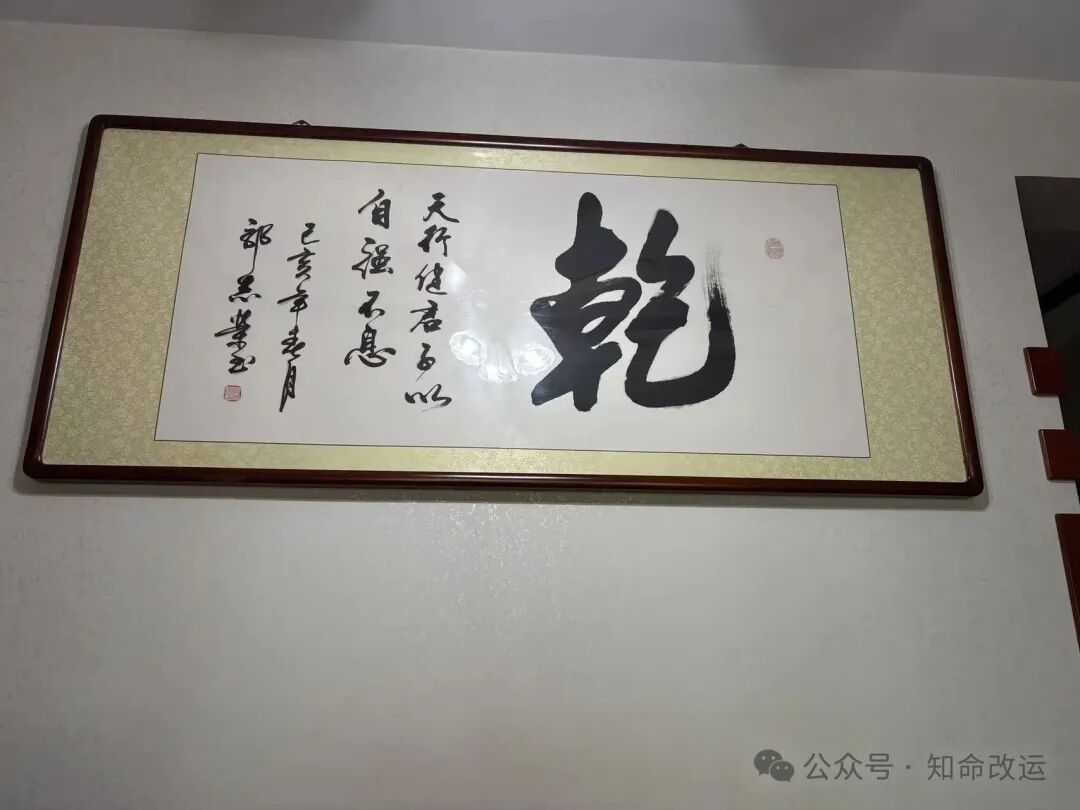 乾
天行健君子以
自强不息
己亥年春月
公众号 · 知命改运